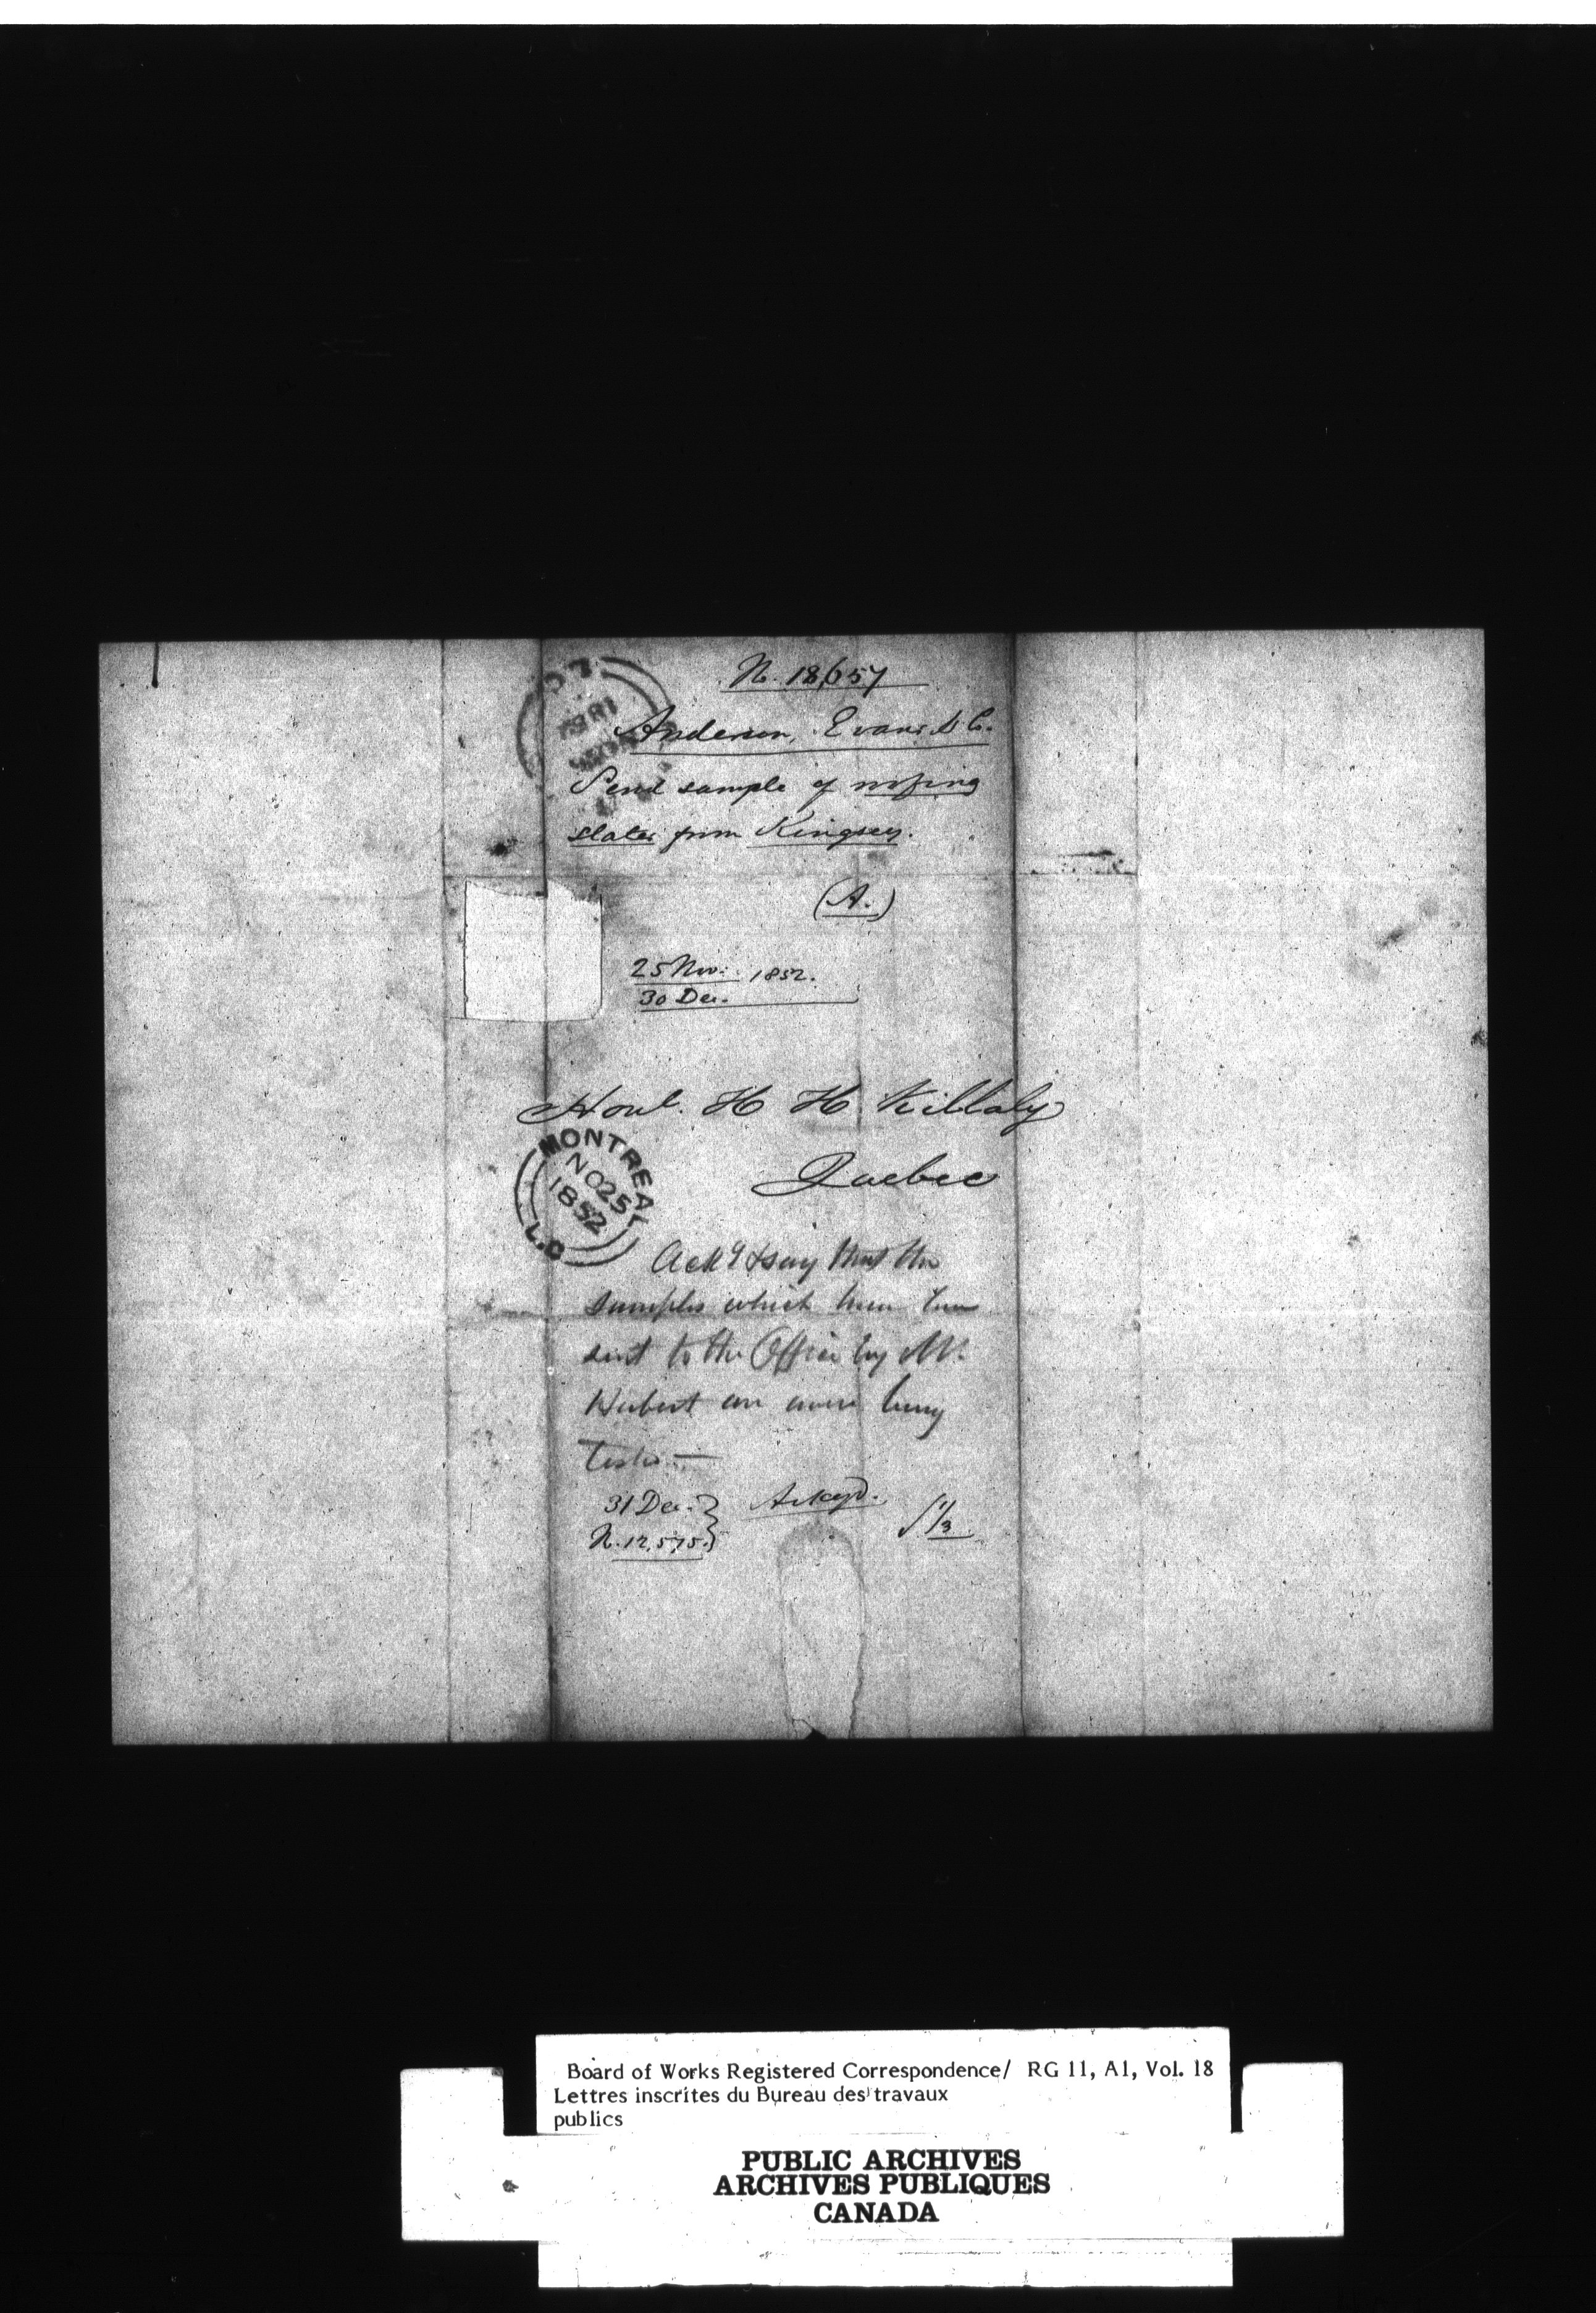 N. 18,657
Anderson, Evans & Co.
Send sample of roofing
slates from Kingsey.
(A.)
25 Nov: 1852.
30 Dec.
Honl. H H Killaly
Quebec
MONTREAL
NO 25
1852
L.C
Ackg & say that the
samples which have been
sent to the Office by Mr.
Hubert are now being
31 Dec. } Ackgd.
N. 12,575. }
Board of Works Registered Correspondence/ RG 11, A1, Vol. 18
Lettres inscrites du Bureau des travaux
publics
PUBLIC ARCHIVES
ARCHIVES PUBLIQUES
CANADA